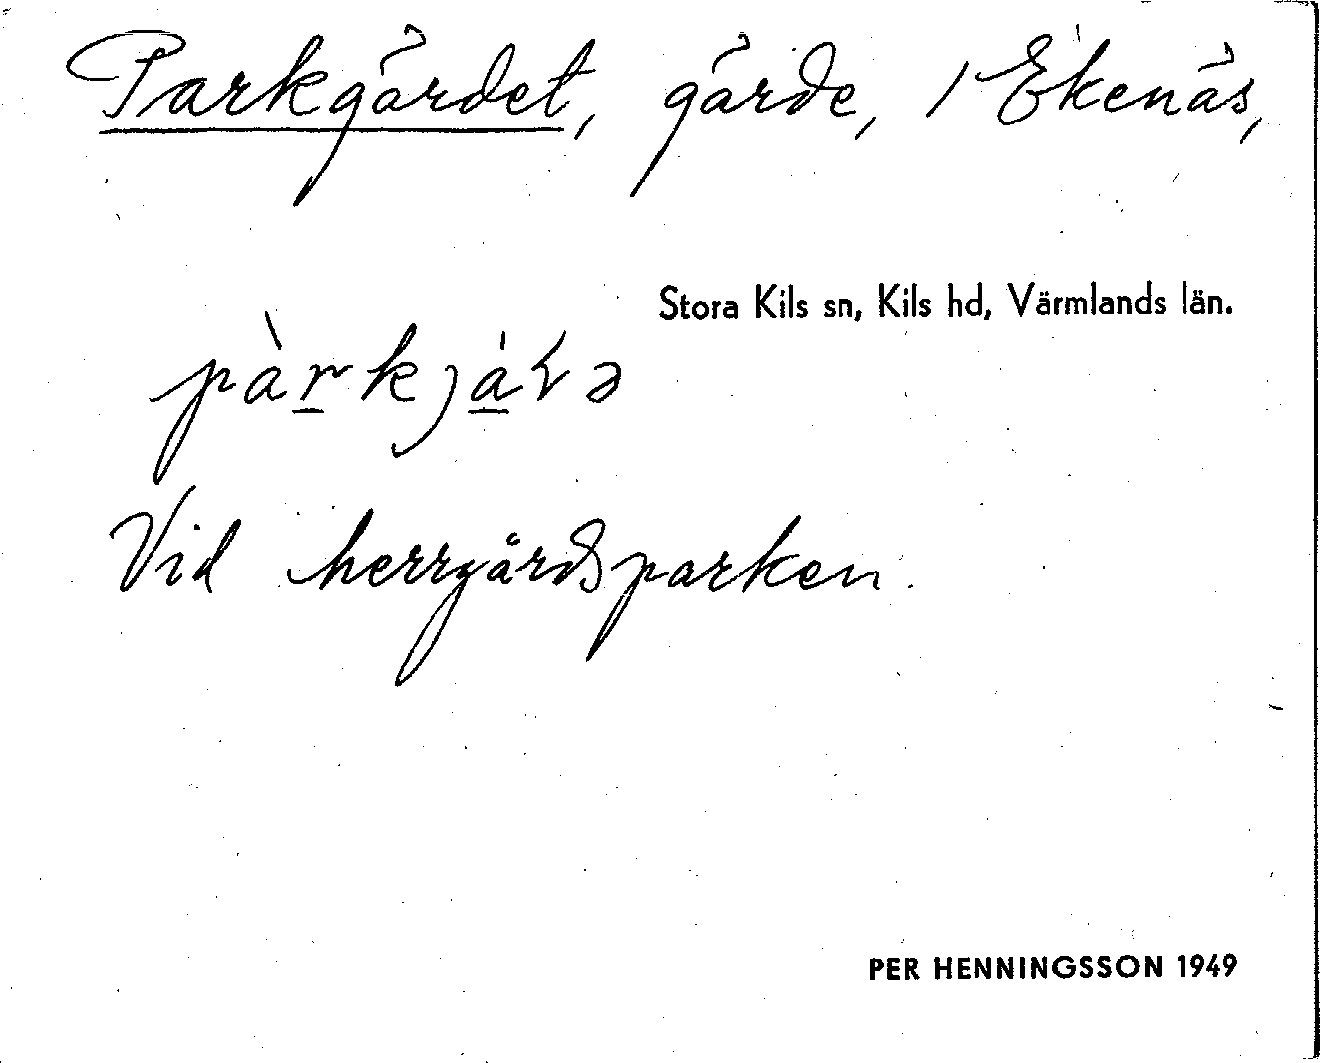 Parkgärdet, gärde, 1 Ekenäs,
Stora Kils sn, Kils hd, Värmlands län.
Vid herrgårdsparken.
PER HENNINGSSON 1949